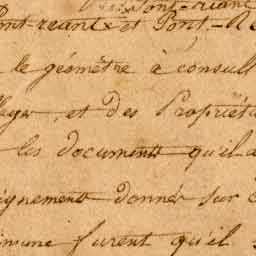 Pont-reant
Pont-reant et Pont-Re
le géomètre à consult
llages, et des Propriéta
les documents qu'il a
eignements donnés sur
mmune furent qu'il